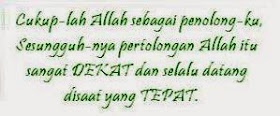 Cukup-lah Allah sebagai penolong-ku,
Sesungguh-nya pertolongan Allah itu
sangat DEKAT dan selalu datang
disaat yang TEPAT.